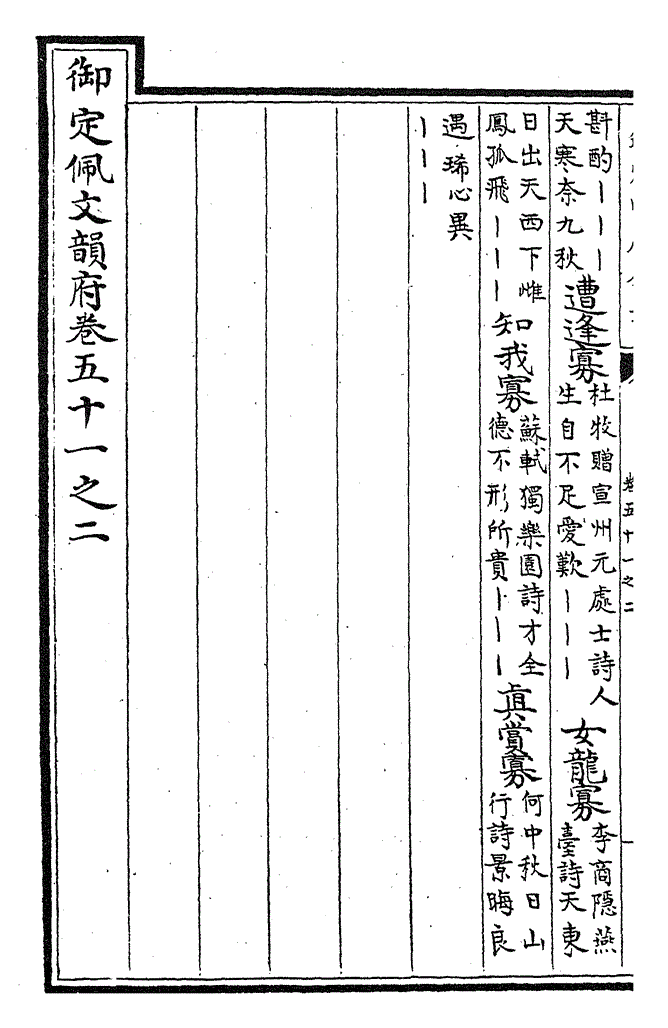 卷五十一之二
斟酌｜｜｜
天寒奈九秋
遭逢寡
杜牧贈宣州元處士詩人
生自不足愛歎｜｜｜
女龍寡
李商隠燕
臺詩天東
日出天西下雌
鳳孤飛｜｜｜
知我寡
蘇軾獨樂園詩才全
德不形所貴｜｜｜
眞賞寡
何中秋日山
行詩景晦良
遇琋心異
｜｜｜
御定佩文韻府卷五十一之二